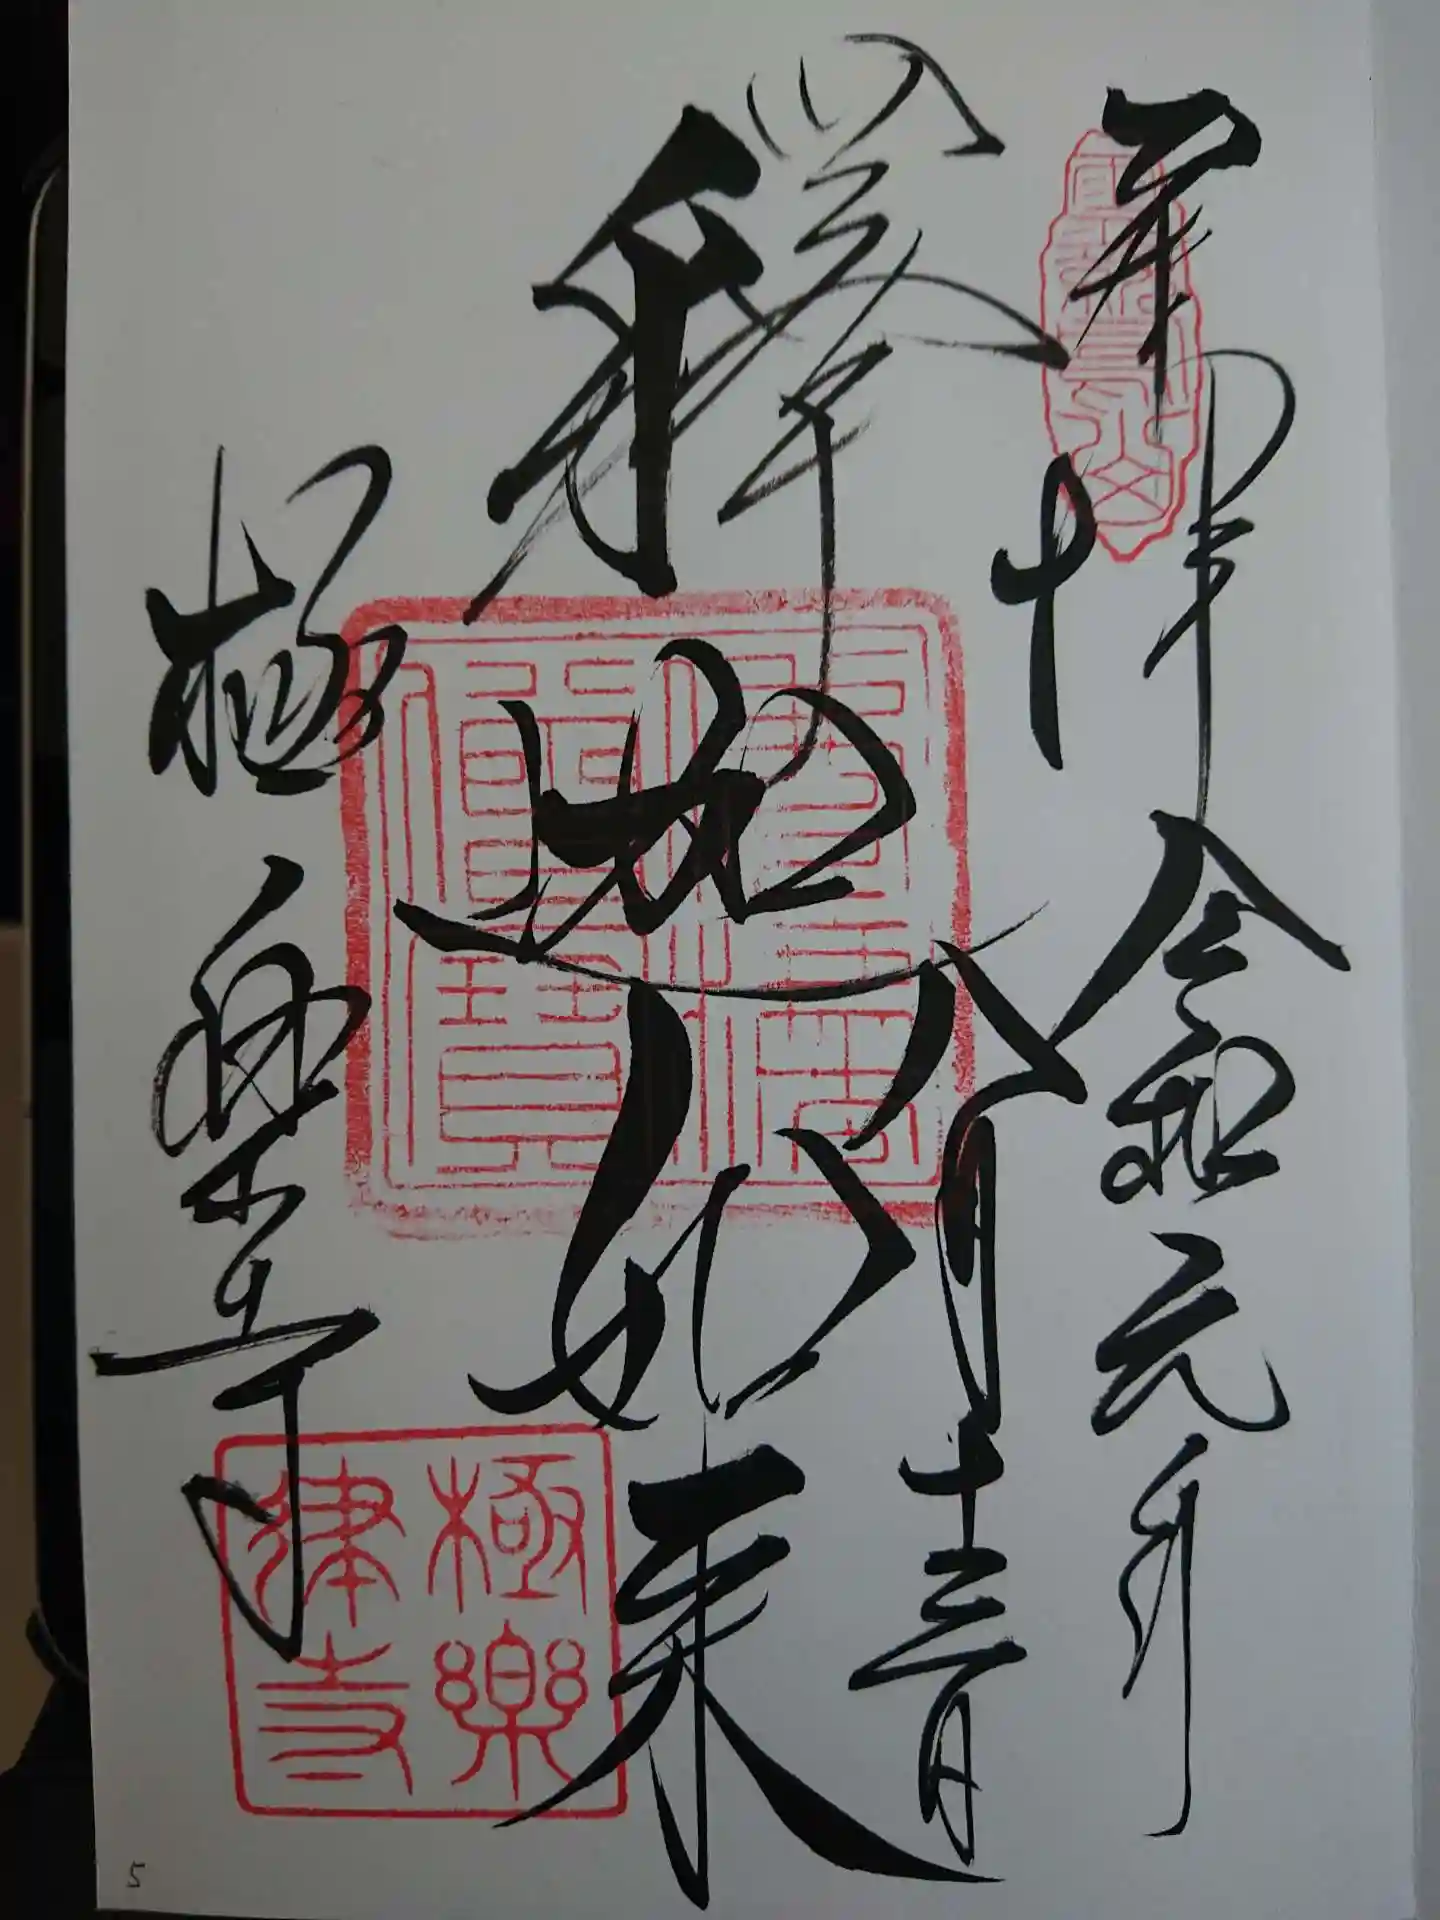 奉拝
令和元年
八月十三日
釋迦如来
極楽寺
佛法
僧寶
極樂
律寺
5